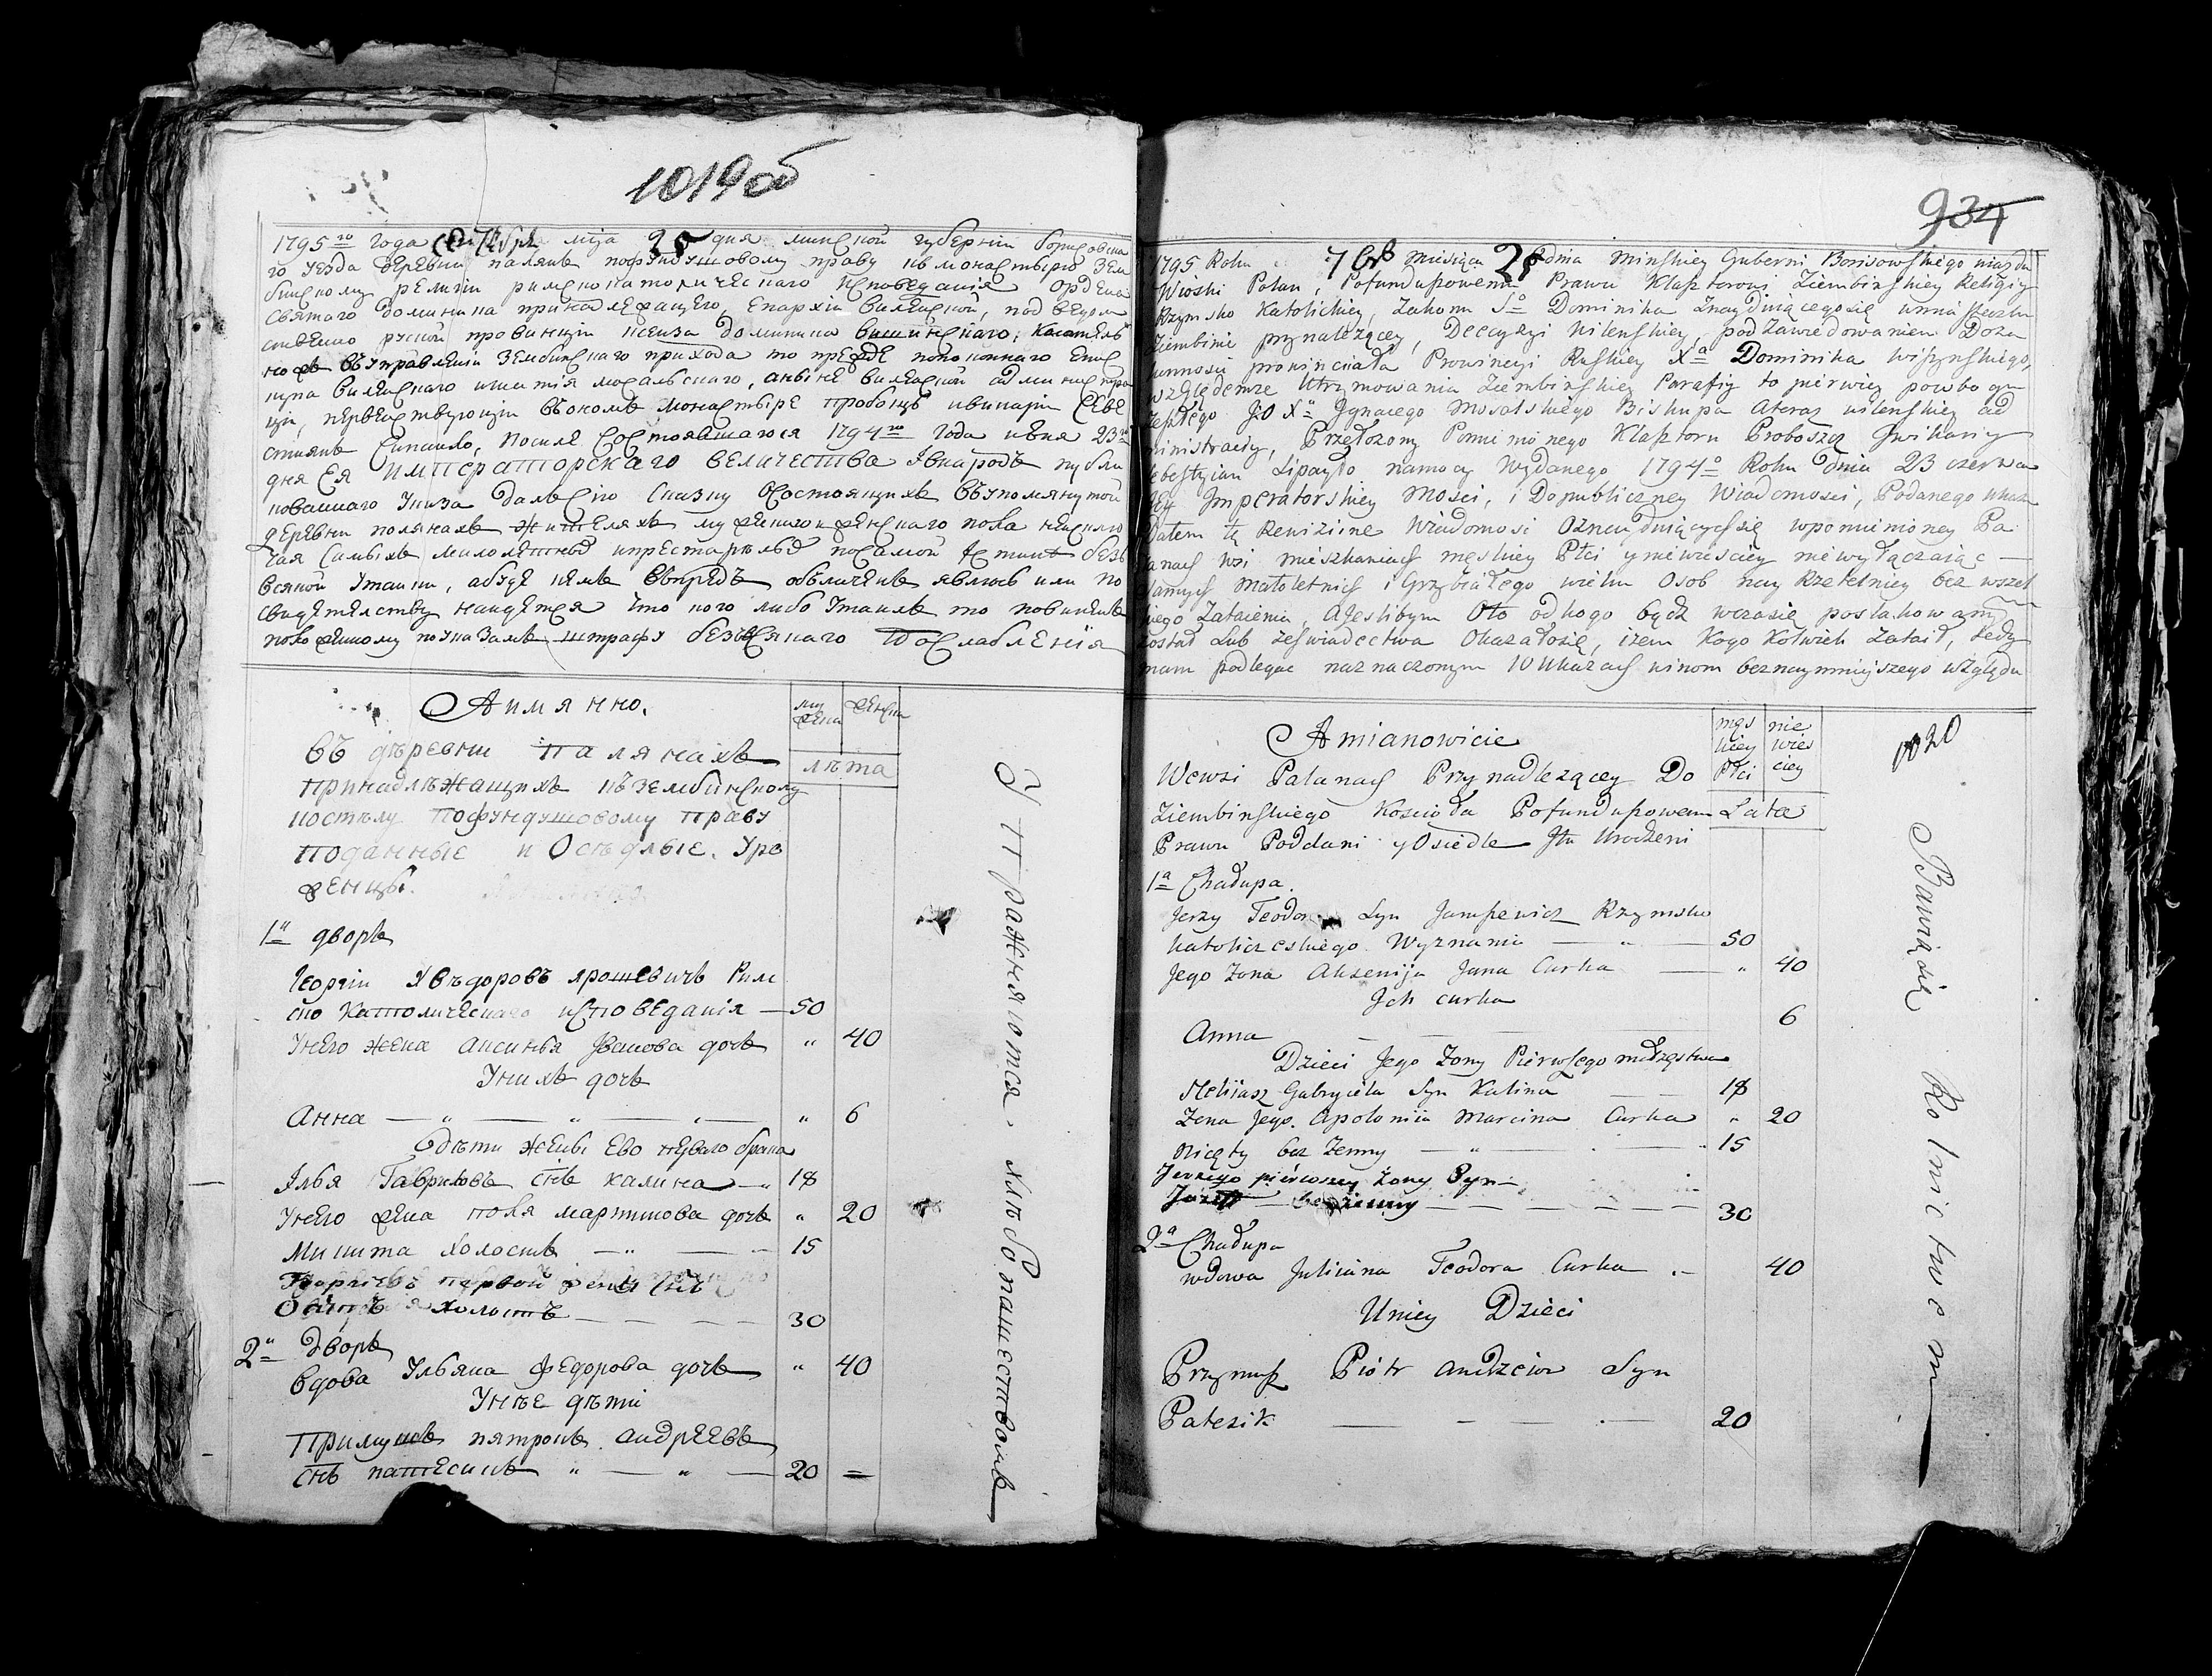 1019 об
1795го года сентября мца 25 дня минской губернiи борисовска
го уезда деревни палянъ пофундушовому праву къ монастырю зем
бинскому религiи римскокатолическаго исповеданiя ордена
святаго доминика принадлежащего, епархiи виленской, под ведом
ственно руской провинцiи ксенза доминика вишинскаго, касатель
но жъ въ управленiи зембинскаго прихода то прежде покоинаго епис
купа виленскаго игнатiя мосальскаго, аныне виленской администра
цiи, первенствующiи въ ономъ монастыре пробощъ ивикарiи себе
стиянъ Липаило, посилѣ состоявшагося 1794го года июня 23го
дня Ея Императорскаго величества внародъ публи
кованнаго указа далъ сiю сказку осостоящихъ въ упомянутой
деревни поляхъ жителяхъ мужескаго и женскаго пола неисклю
чая самыхъ малолетныъ ипрестарѣлыъ посамой истинѣ безъ
всякой утаики, абуде кемъ впредъ обличенъ явлюсь или по
свидетелству наидется что кого либо утаилъ то повиненъ
положенному поуказамъ штрафу безъ всякаго послабленiя
Аимянно.
му жеска
женска
лѣта
въ деревни палянахъ
принадлѣжащихъ къ зембинскому
костѣлу пофундушовому праву
поданные и осѣдлые. Уро
женцы.
1й дворъ
Георгiи хвѣдоровъ ярошевичъ Рим
ско католическаго исповеданiя — 50
Унего жена аксинья Iванова дочь " 40
Унихъ дочь
Анна — " — " — " — " 6
дѣти жены ево первого брака
Iлья Гавриловъ снъ калина — " 18
Унего жена поля мартинова дочь " 20
Микита холостъ — " — " 15
Георгiевъ первой жены снъ
Осипъ холостъ — — — — 30
2й дворъ
вдова Ульяна федорова дочь " 40
Унѣе дѣти
Примушъ пятрокъ андреевъ
снъ патесикъ " — " — 20 =
Упражняются. хлѣбопашествомъ
934
1795 Roku 7bra miesiąca 25 dnia Minskiey Guberni Borisowskiego uiazdu
Wioski Polan, Pofunduszowemu Prawu Klasztorowi Ziembinskiey Religiy
Rzymsko Katolickiey, Zakonu So Dominika Znayduiącegosię wmiasteczku
Ziembinie prynależącey, Decezyi wilenskiey, pod Zawiedowaniem Doza
umnosci prowinciała Prowincyi Ruskiey Xa Dominika wiszynskiego,
wzgledemże Utrzymowania Ziembinskiey Parafiy to pierwiey powbogu
zeszłego JO Xa Jgnacego Mosalskiego Biskupa Ateraz wilenskiey ad
ministracij, Przełożony Pomienionego Klasztoru Proboszcz Jwikariy
Sebestyian Lipayło namocy Wydanego 1794o Roku Dnia 23 czerwca
Jey Jmperatorskiey Mosci, i Dopubliczney Wiadomosci, Podanego ukazu
Datem tę Rewiziine Wiadomosi Oznayduiącychsię wpomienioney Pa
lanach wsi mieszkancach męskiey Płci yniewiesciey niewyłączaiąc —
samych małoletnich i Grzybiałego wieku Osob nay Rzetelniey bez wszel
kiego Zataienia, Ajeslibym Oto od kogo bądz wczasie poszlakowany
został Lub zeswiadectwa Okazałosię, iżem Kogo Kolwiek Zataił, tedy
mam podlegac naznaczonym w ukazach winom beznaymnieyszego względu
Amianowicie
męs kiey Płci
nie wies ciey
Lata
Wewsi Palanach Przynadlezącey Do
Ziembinskiego Koscioła Pofunduszowem
Prawu Poddani y Osiedle Jtu Urodzeni
1a Chałupa.
Jerzy Teodora Syn Jaruszewicz Rzymsko
katoliczeskiego Wyznania — " — 50
Jego Zona Aksenija Jana Curka — " 40
Jch curka
Anna — — — 6
Dzieci Jego Zony Pierwszego małżęstwa
Heliasz Gabryiela Syn Kalina — 18
Zona Jego. Apolonija Marcina Curka " 20
Nikity bez Zenny — " — 15
Jerzego pierwszey żony Syn —
Jozef — bezzenny — — — — — 30
2a Chałupa
wdowa Juliiana Teodora Curka .— 40
Uniey Dzieci
Przymusz Piotr Andrzeia Syn
Patesik — — — 20
1020
Bawią się Rolnictwem